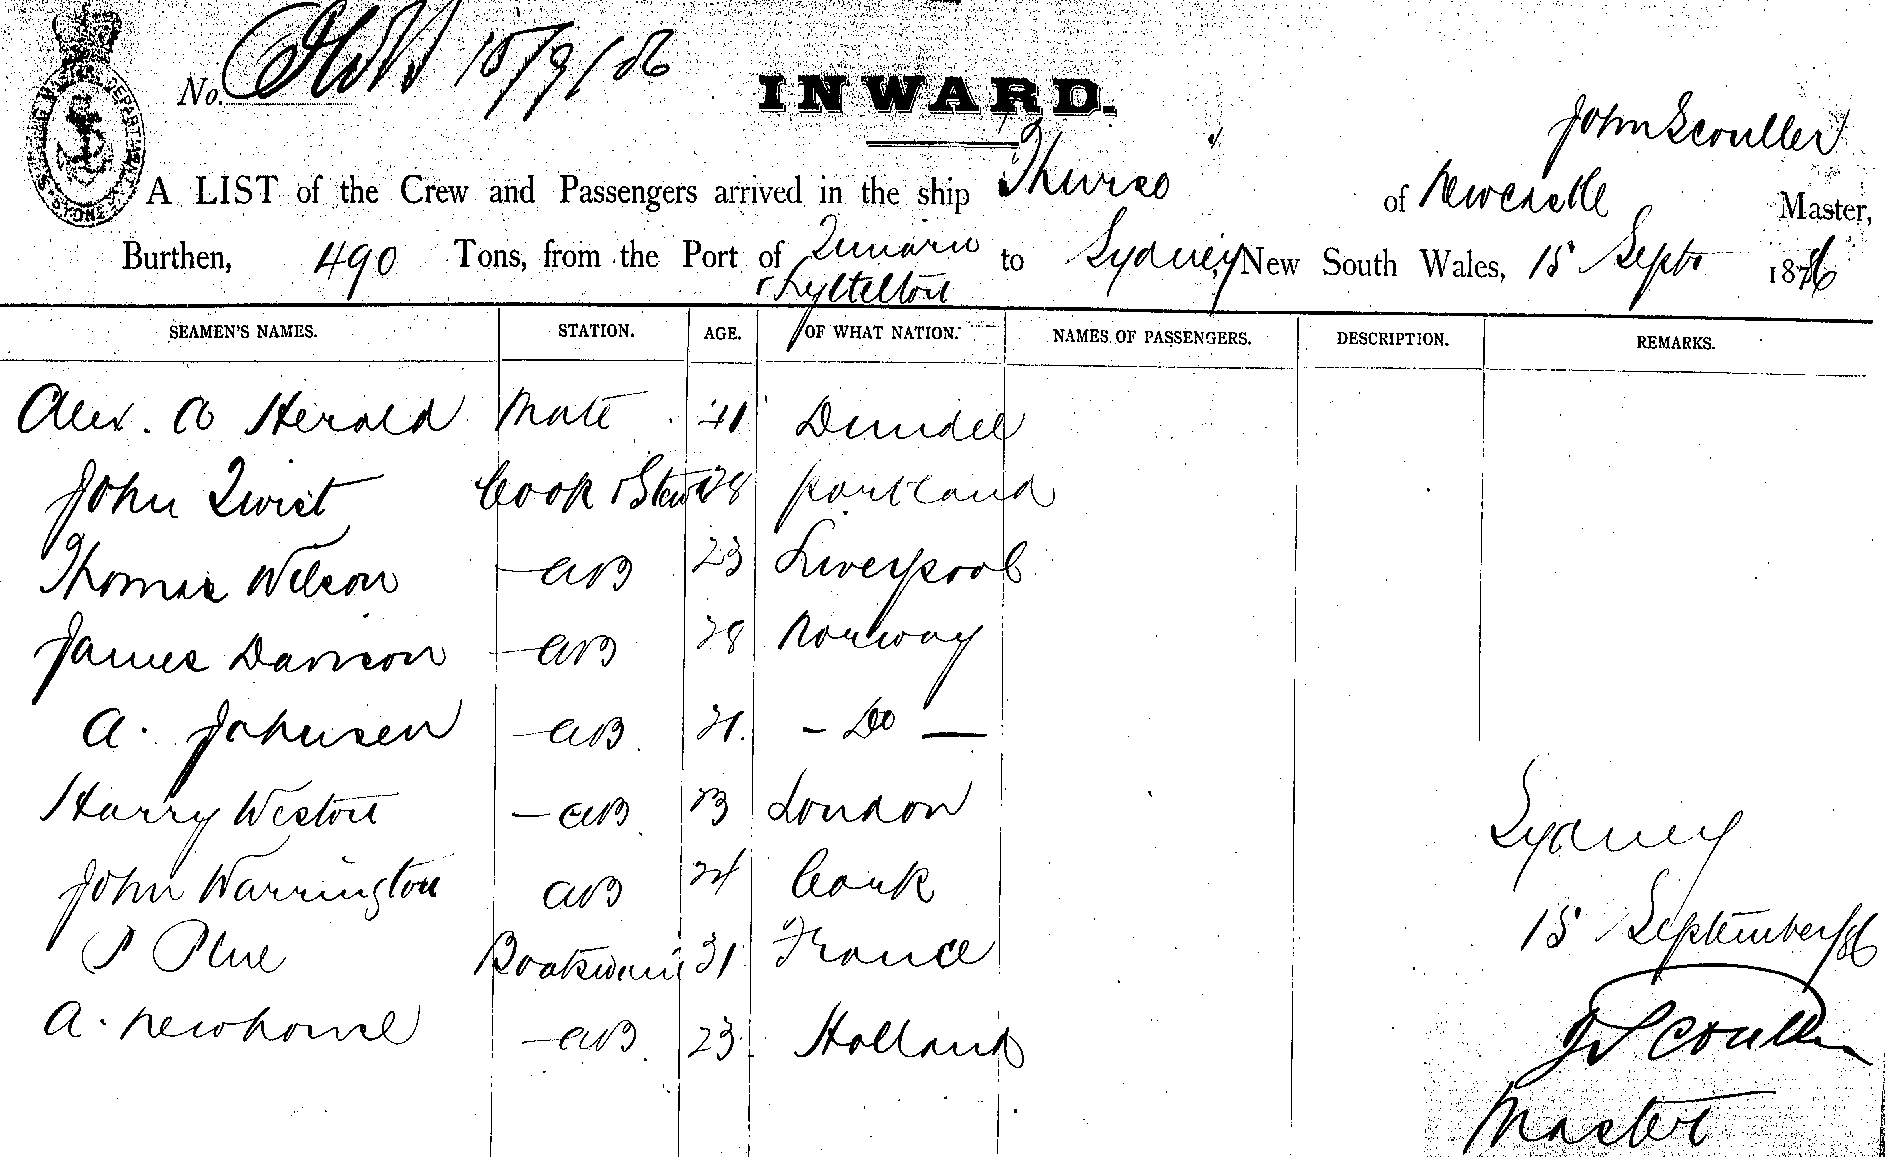 No. 15/9/86
INWARD.
John Scouller
A LIST of the Crew and Passengers arrived in the ship Thurso of Newcastle Master,
Burthen, 490 Tons, from the Port of Timaru to Sydney, New South Wales, 15 Septr 1886
& Lyttelton
SEAMEN'S NAMES. STATION. AGE. OF WHAT NATION. NAMES OF PASSENGERS. DESCRIPTION. REMARKS.
Alex. Herald Mate 41 Dundee
John Twist Cook & Stewd 28 Portland
Thomas Wilson AB 23 Liverpool
James Davison AB 28 Norway
A. Johnsen AB 21 - Do -
Harry Weston AB 23 London
John Warrington AB 24 Cork
P Plue Boatswain 31 France
A. Newhouse AB 23 Holland
Sydney
15 September/86
J Scouller
Master